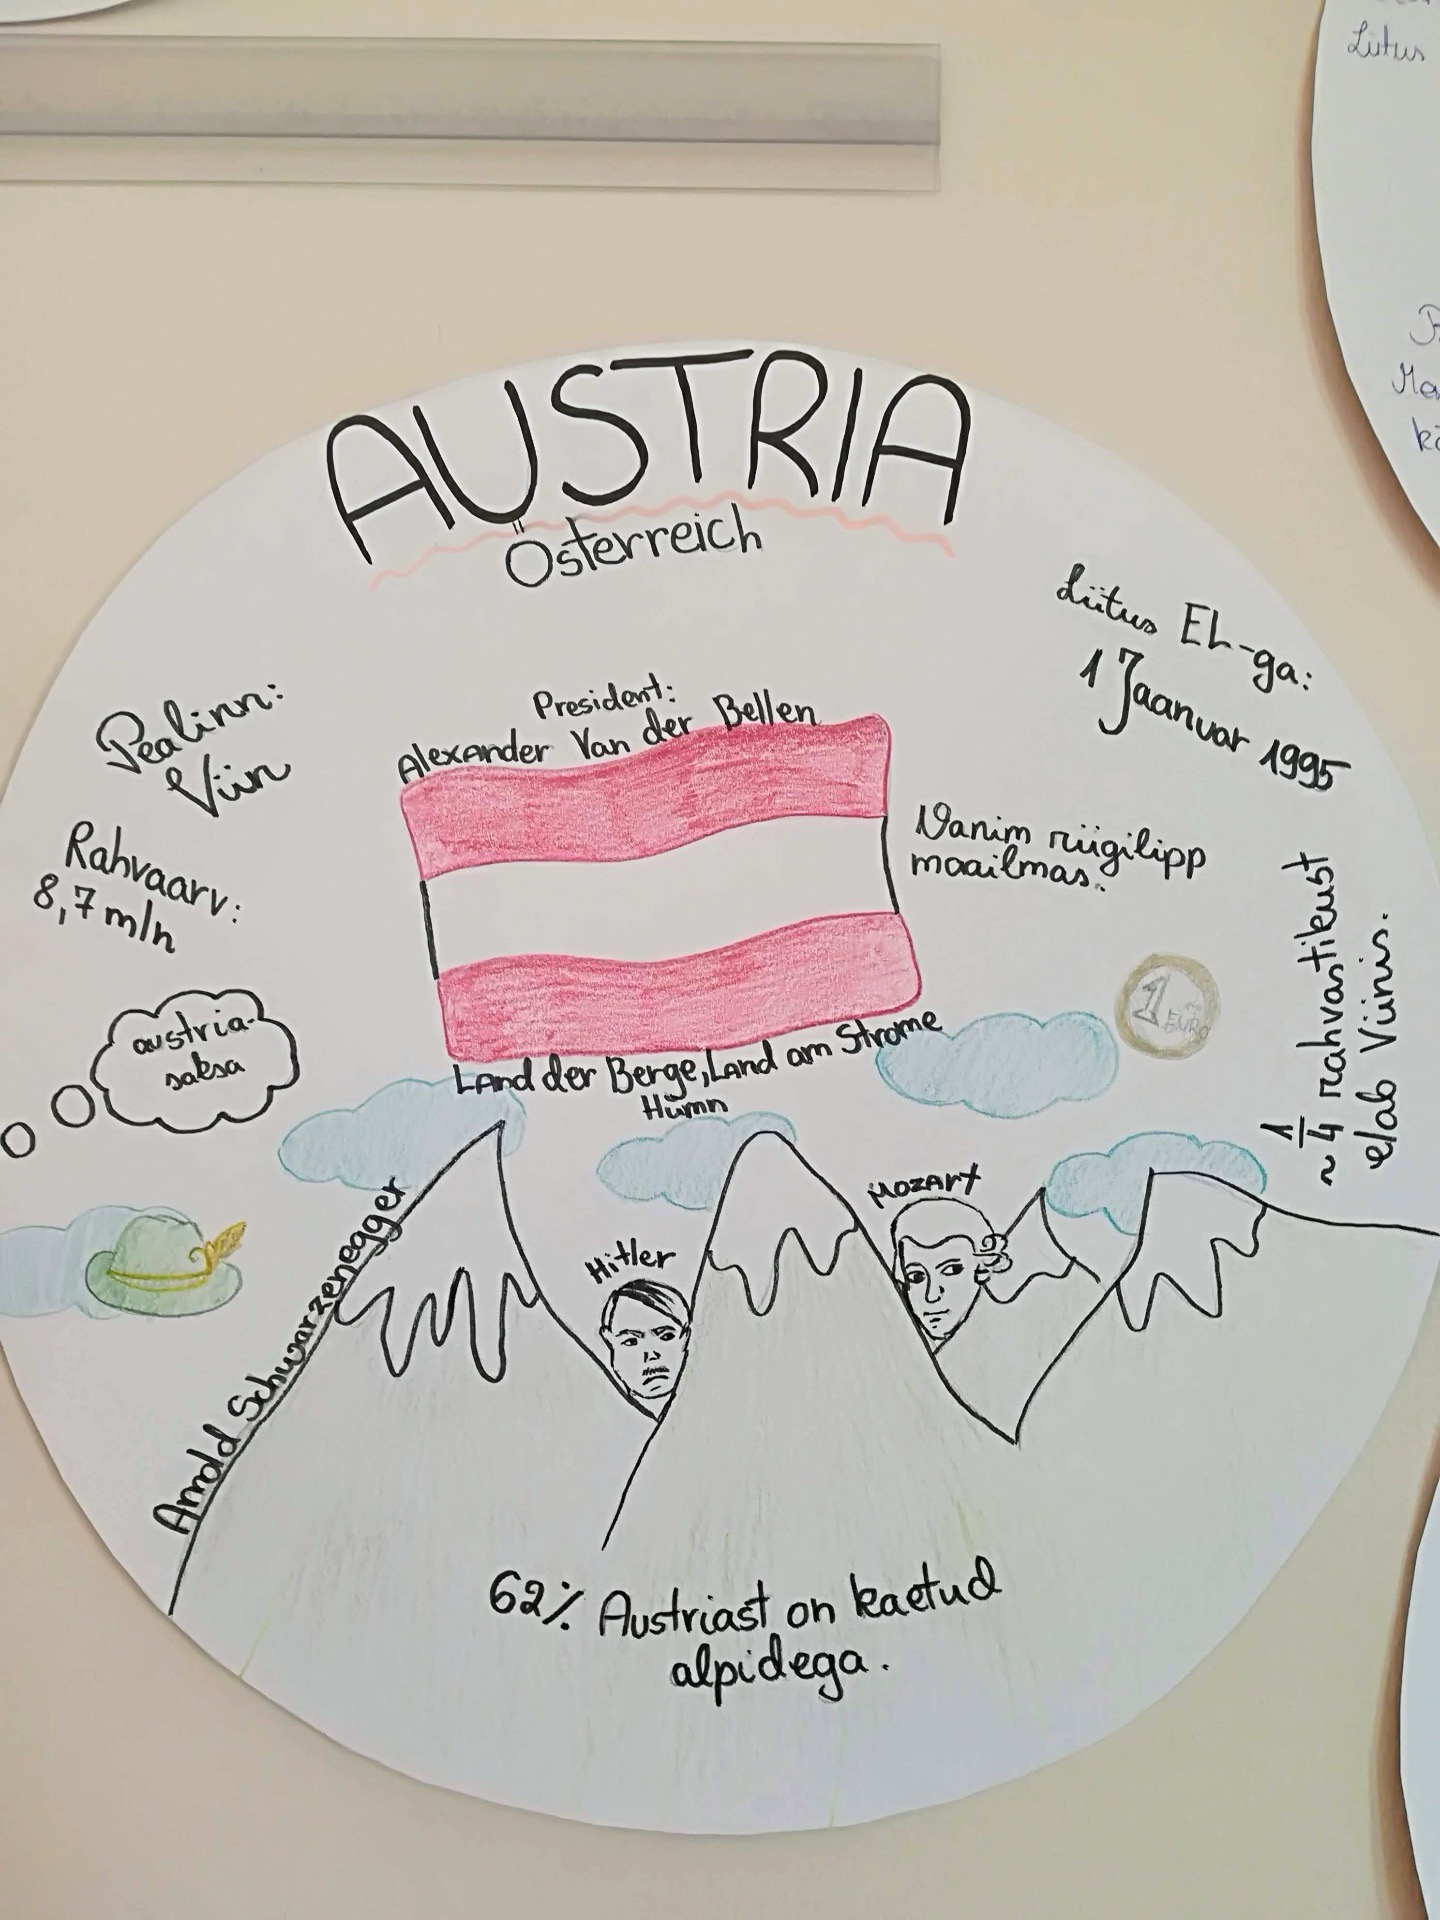 AUSTRIA
Österreich
Liitus EL-ga:
1 Jaanuar 1995
Pealinn:
Viin
President:
Alexander Van der Bellen
Rahvaarv:
8,7 mln
Vanim riigilipp
maailmas.
~ 1/4 rahvastikust
elab Viinis.
austria-
saksa
1
EURO
Land der Berge, Land am Strome
Hümn
Arnold Schwarzenegger
Hitler
Mozart
62% Austriast on kaetud
alpidega.
Liitus